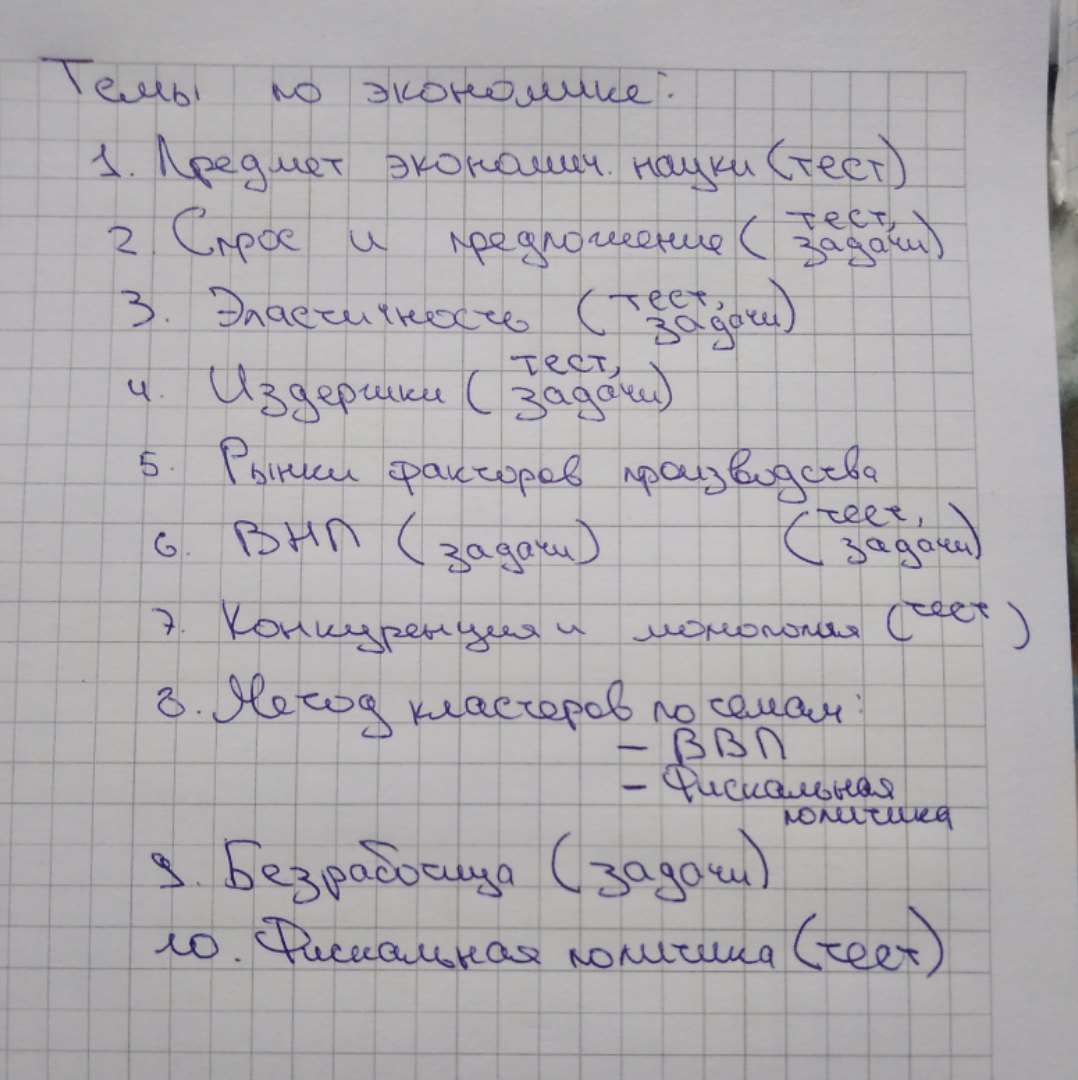 Темы по экономике:
1. Предмет экономич. науки (тест)
2. Спрос и предложение (тест, задачи)
3. Эластичность (тест, задачи)
4. Издержки (тест, задачи)
5. Рынки факторов производства (тест, задачи)
6. ВНП (задачи)
7. Конкуренция и монополия (тест)
8. Метод кластеров по темам:
- ВВП
- Фискальная
политика
9. Безработица (задачи)
10. Фискальная политика (тест)